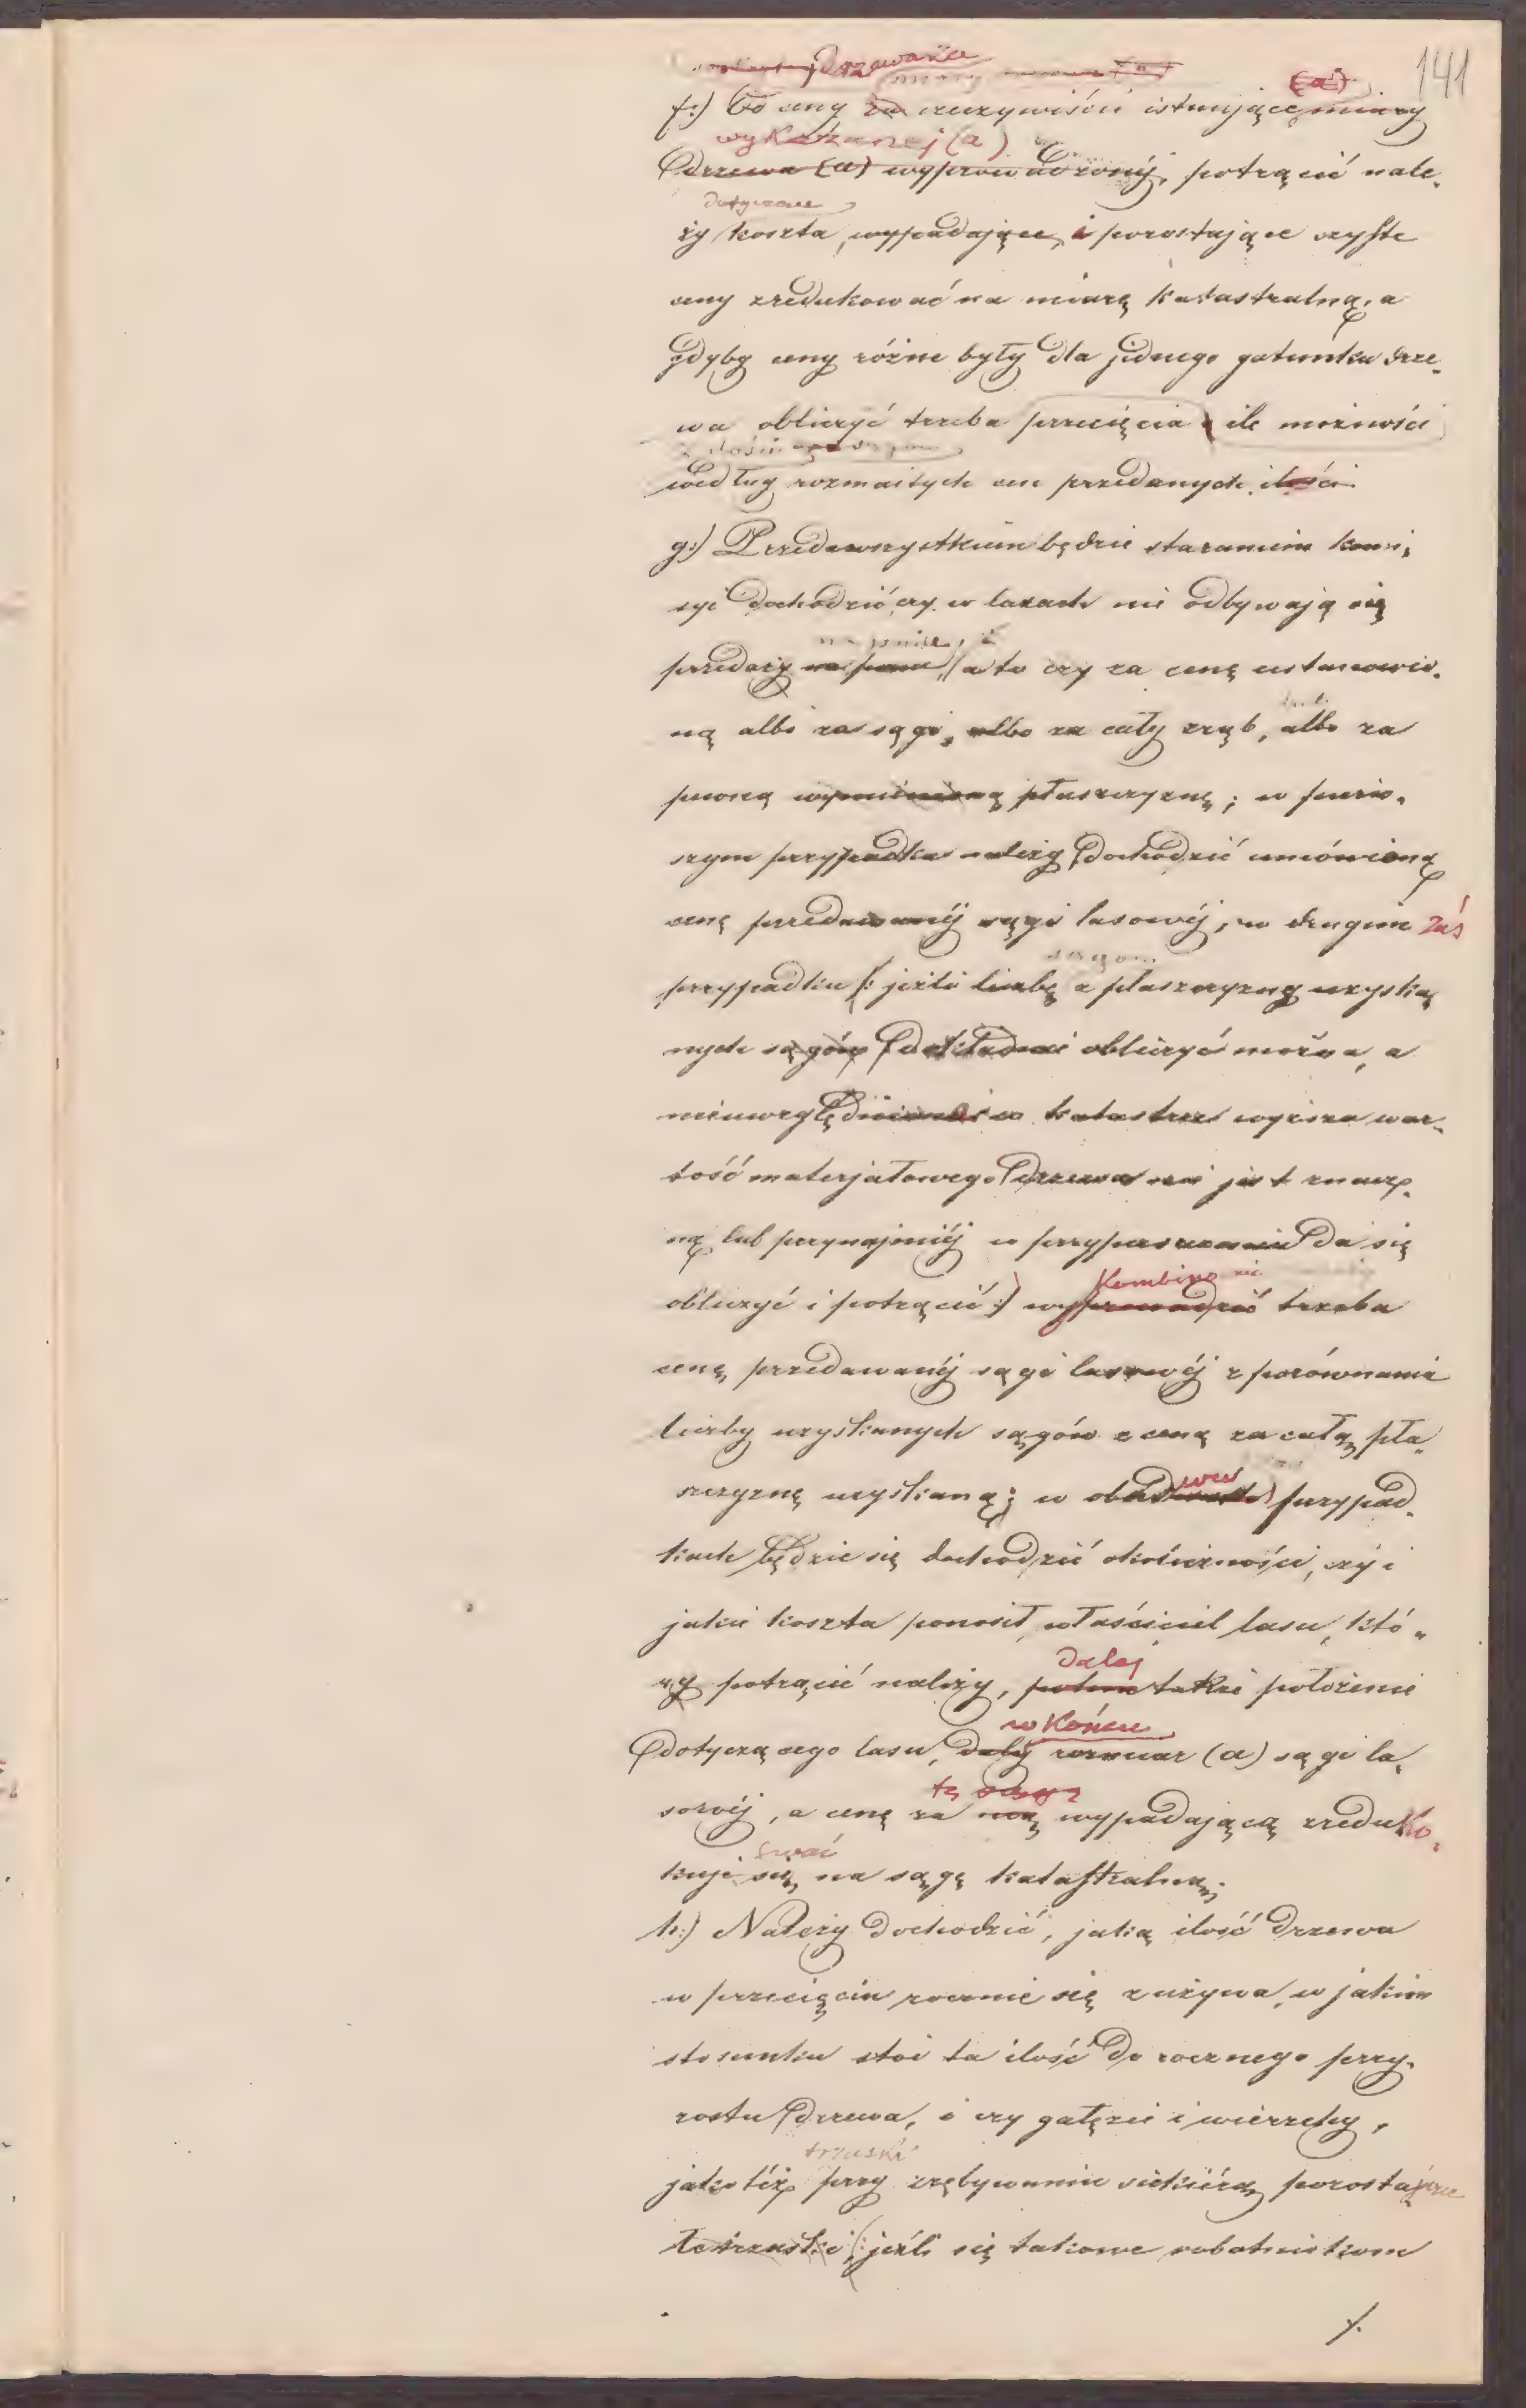 141
drzewa
miary (a)
f:) Od ceny za rzeczywiście istniejące miary
wykazanej (a)
drzewa (a) wyprowadzonéj, potrącić nale„
dotyczące
ży koszta, wypadające, i pozostające czyste
ceny zredukować na miarę katastralną, a
gdyby ceny różne były dla jednego gatunku drze„
wa obliczyć trzeba przecięcia ile możności
według rozmaitych cen przedanych ilości
g:) Przedewszystkiem będzie staraniem komi„
syi dochodzić czy w lasach nie odbywają się
na pniu, i
przedaży na pniu, a to czy za cenę ustanowio„
ną albo za sągi, albo za cały zrąb, albo za
pewną wymienioną płaszczyznę; w pierw„
szym przypadku należy dochodzić umówioną
cenę przedawanéj sągi lasowéj, w drugim zaś
przypadku (: jeżli liczbę z płaszczyzny uzyska„
nych sągów dokładnie obliczyć można, a
nieuwzględniona w katastrze wyższa war„
tość materjałowego drzewa nie jest znacz„
ną, lub przynajmniéj w przypuszczeniu da się
Kombino
obliczyć i potrącić :) wyprowadzić trzeba
cenę przedawanéj sągi lasowéj z porównania
liczby uzyskanych sągów z ceną za całą pła„
szczyznę uzyskaną; w obudwóch przypad„
kach będzie się dochodzić okoliczności, czy i
jakie koszta ponosił właściciel lasu, któ„
dalej
ry potrącić należy, potem także położenie
w końcu
dotyczącego lasu, daléj rozmiar (a) sągi la„
tę sągę
sowéj, a cenę za nią wypadającą zreduko„
wać
kuje się na sągę katastralną.
h:) Należy dochodzić, jaką ilość drzewa
w przecięciu rocznie się zużywa, w jakim
stosunku stoi ta ilość do rocznego przy„
rostu drzewa, i czy gałęzie i wierzchy,
trzaski
jakotéż przy zrębywaniu siekierą pozostające
trzaski, (: jeźli się takowe robotnikom
./.